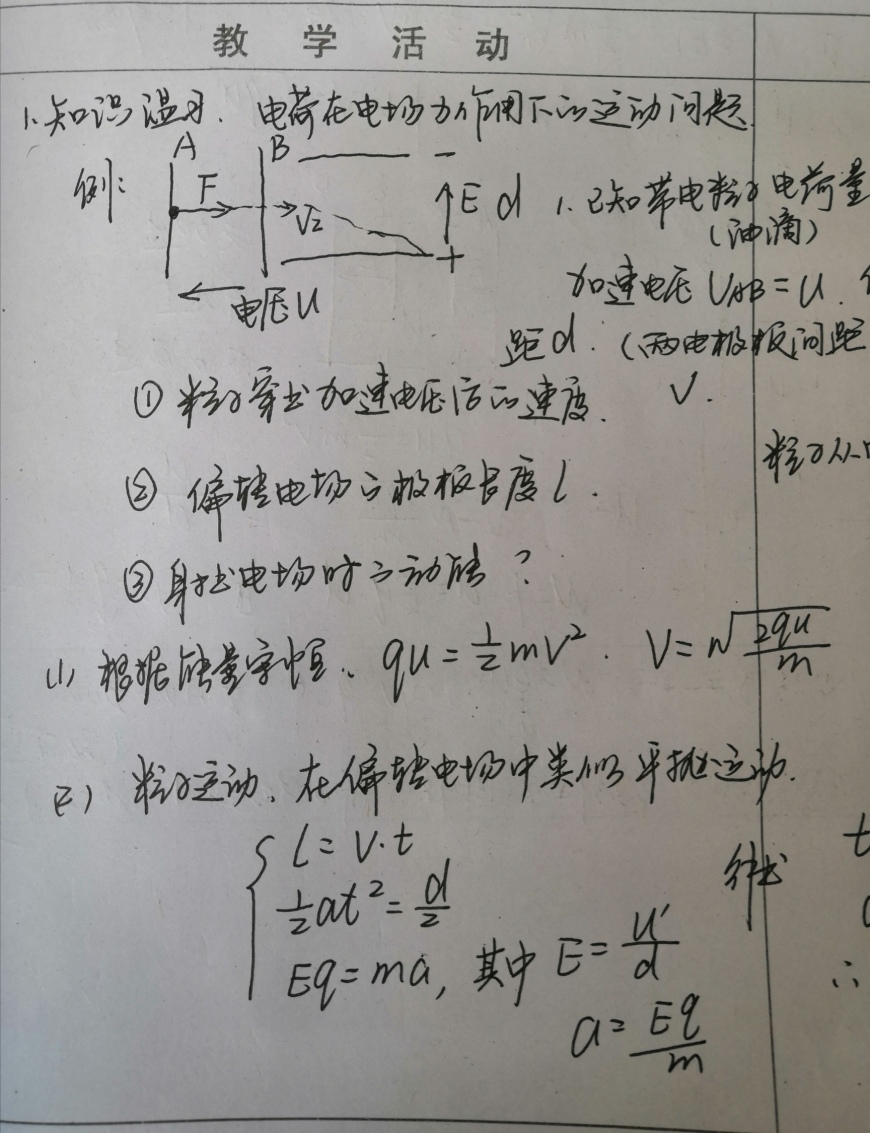 教 学 活 动
1.知识温习. 电荷在电场力作用下的运动问题.
例:
A B
F
V₂
E d
电压U
1. 已知带电粒子电荷量
(油滴)
加速电压 UAB = U.
距d. (两电极板间距
① 粒子穿出加速电压后的速度. V.
粒子从
② 偏转电场的极板长度 l.
③ 射出电场时的动能?
(1) 根据能量守恒、 qu = 1/2 mv². V = √(2qu/m)
(2) 粒子运动、在偏转电场中类似平抛运动.
l = v·t
1/2 at² = d/2
得出 t
Eq = ma, 其中 E = U'/d
∴
a = Eq/m